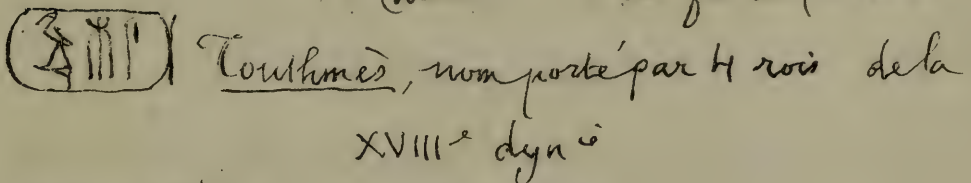 Touthmès, nom porté par 4 rois de la
XVIIIe dyn ie